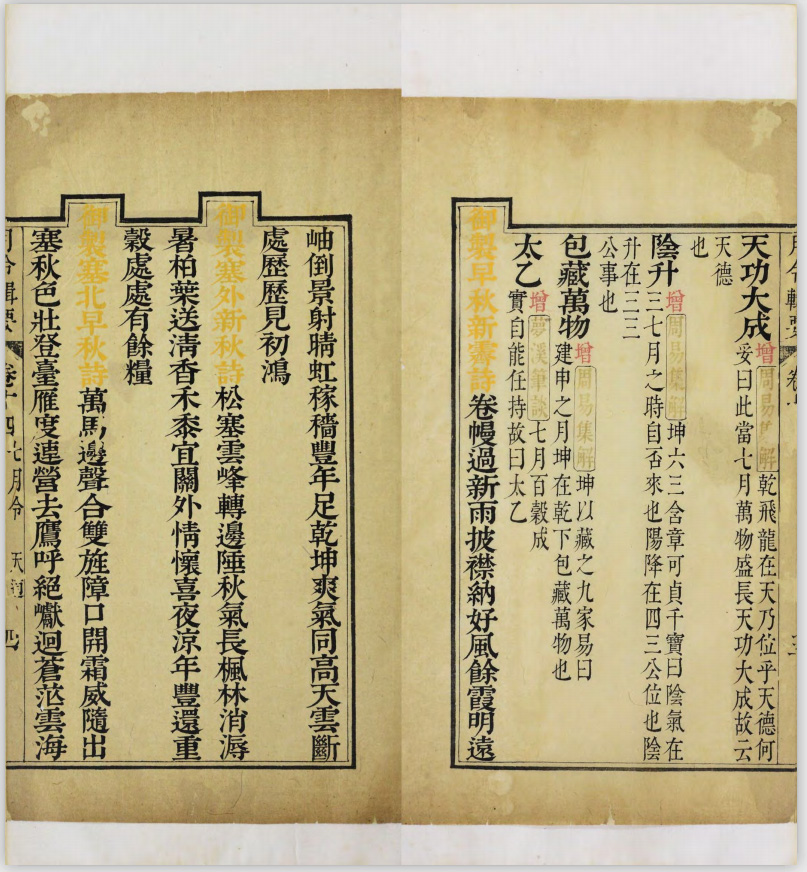 月令輯要 卷十 三
天功大成增周易集解乾飛龍在天乃位乎天德何
妥曰此當七月萬物盛長天功大成故云
天德
也
陰升增周易集解坤六三含章可貞千寶曰陰氣在
三七月之時自否來也陽降在四三公位也陰
升在三三
公事也
包藏萬物增周易集解坤以藏之九家易曰
建申之月坤在乾下包藏萬物也
太乙增夢溪筆談七月百穀成
實自能任持故曰太乙
御製早秋新霽詩卷幔過新雨披襟納好風餘霞明遠
岫倒景射晴虹稼穡豐年足乾坤爽氣同高天雲斷
處歷歷見初鴻
御製塞外新秋詩松塞雲峰轉邊陲秋氣長楓林消溽
暑柏葉送清香禾黍宜關外情懷喜夜涼年豐還重
穀處處有餘糧
御製塞北早秋詩萬馬邊聲合雙旌障口開霜威隨出
塞秋色壯登臺雁度連營去鷹呼絕巘迴蒼茫雲海
月令輯要 卷十四 七月令 天道 四